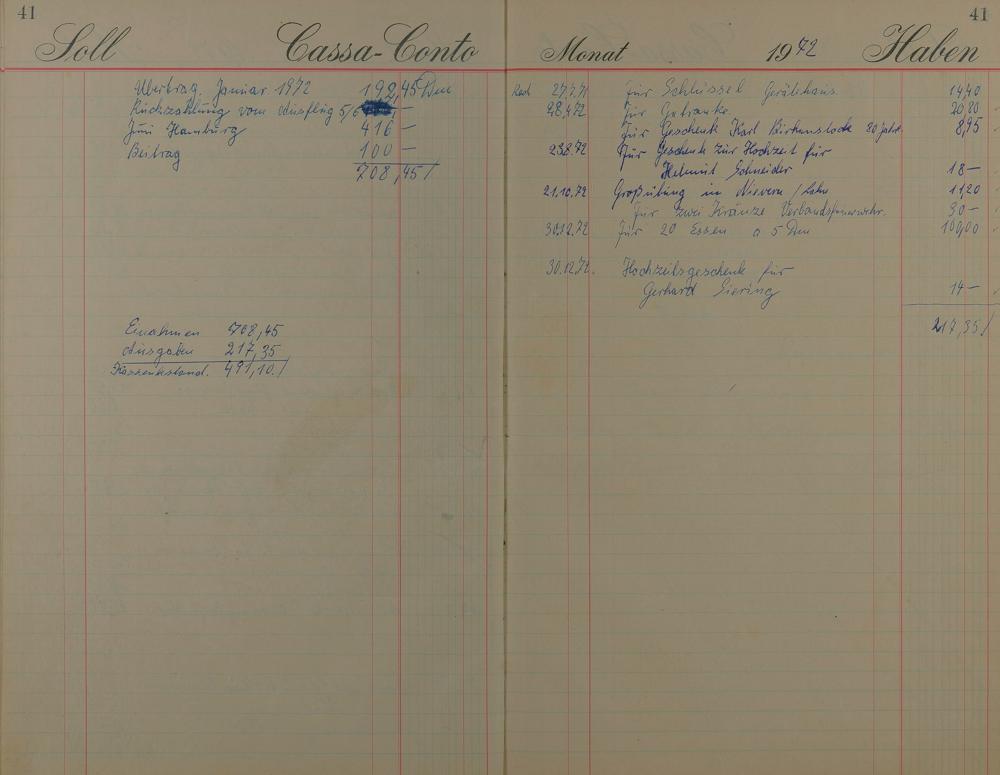 41
Soll Cassa-Conto
Übertrag. Januar 1972 192,45 Dm
Rückzahlung vom Ausflug 5/6
Juni Hamburg 416 —
Beitrag 100 —
708,45/
Einahmen 708,45
Ausgaben 217,35
Kassenbestand. 491,10./
41
Monat 1972 Haben
für Schlüssel Gerätehaus. 14,40
28.4.72 für Getränke. 20,80
für Geschenk Karl Birkenstock 80 Jahr. 8,95
23.8.72 für Geschenk zur Hochzeit für
Helmut Schneider 18 —
21.10.72 Großübung in Nievern / Lahn 11,20
für zwei Kränze Verbandsfeuerwehr. 30 —
30.12.72 für 20 Essen a 5 Dm 100,00
30.12.72. Hochzeitsgeschenk für
Gerhard 14 —
217,35/